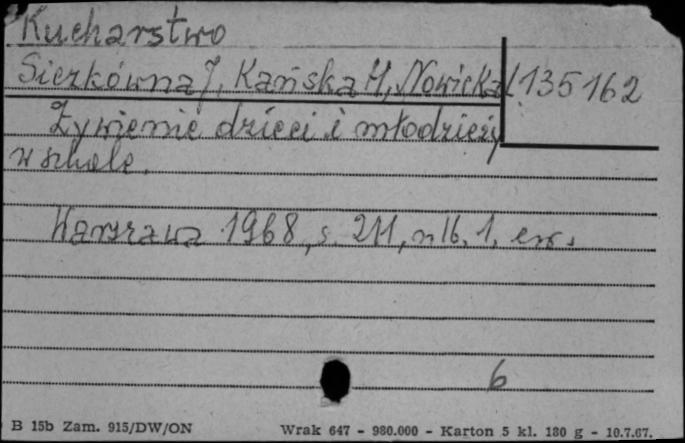 Kucharstwo
Sieczkówna J, Kańska M, Nowicka Ł 135162
Żywienie dzieci i młodzieży
w szkole.
Warszawa 1968, s. 211, nlb. 1, err.
6
B 15b Zam. 915/DW/ON Wrak 647 - 980.000 - Karton 5 kl. 180 g - 10.7.67.